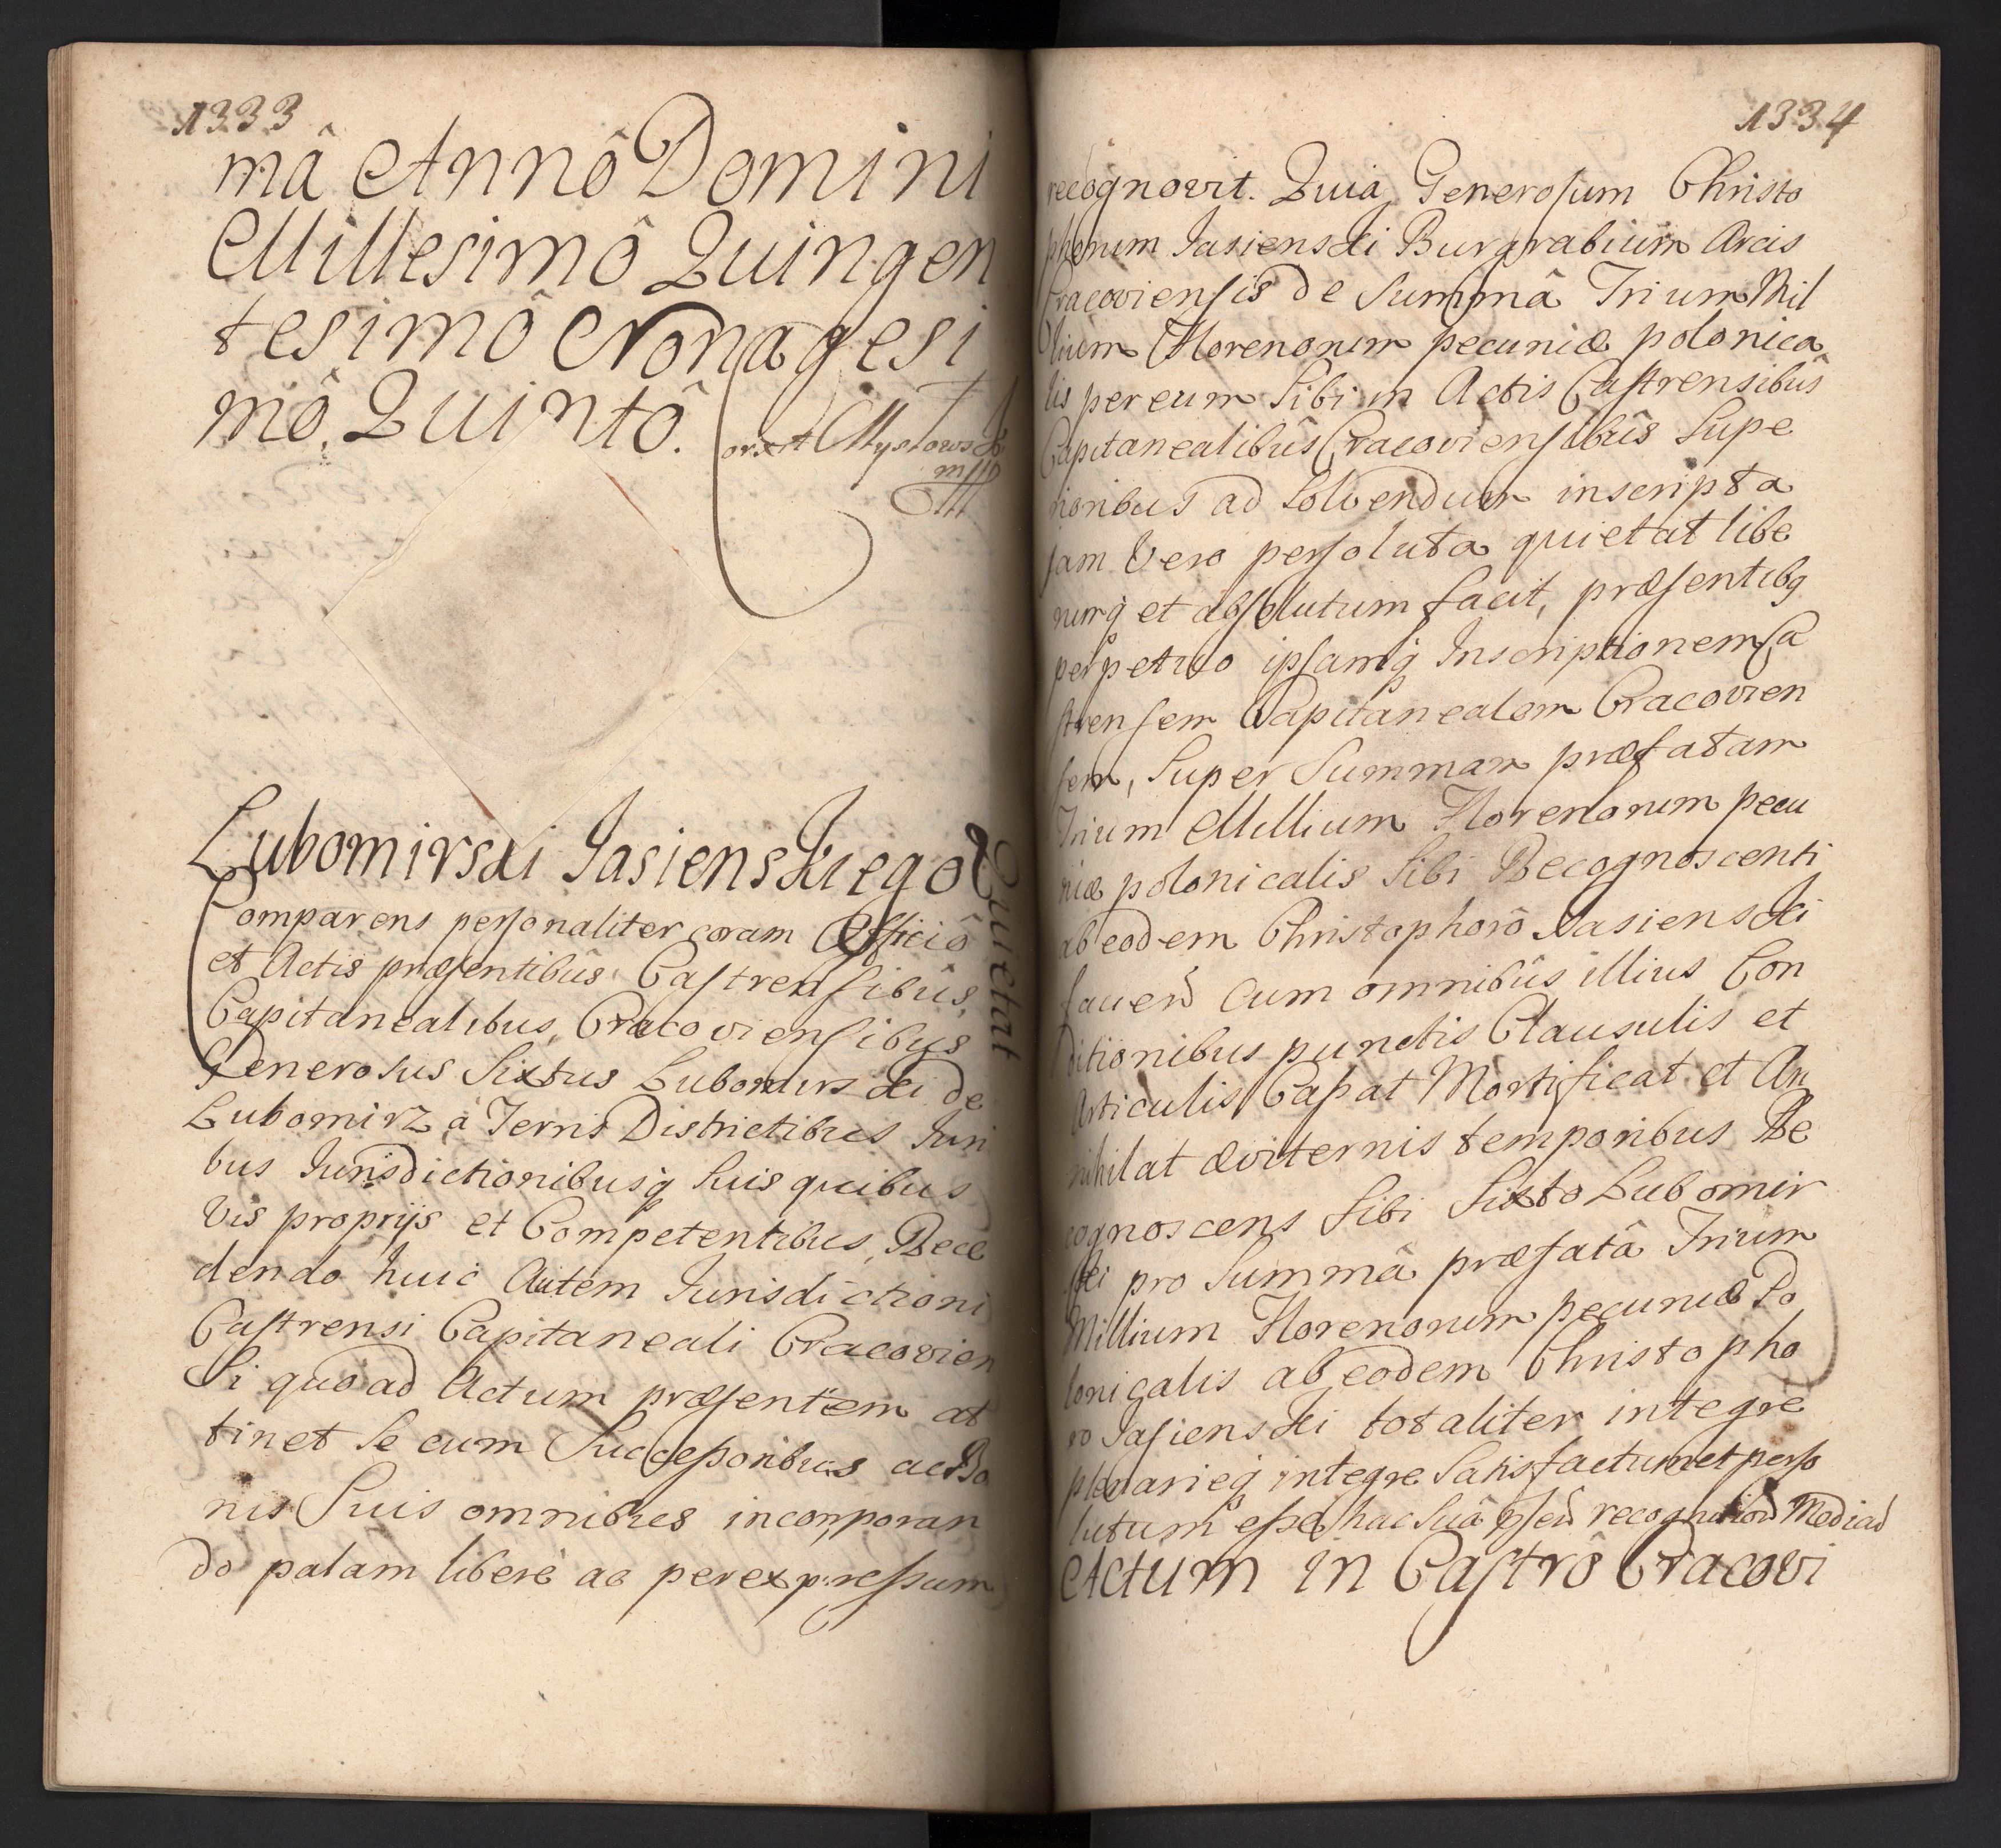 1333
mâ Annô Domini
Millesimô Quingen
tesimô Nonagesi
mô. Quintô.
Lubomirski Jasienskiego
Quietat
Comparens personaliter coram Officiô
et Actis præsentibûs Castrensibûs,
Capitanealibus, Cracoviensibus
Generosus Sixtus Lubomirski de
Lubomirz à Terris Districtibus Juri
bus Jurisdictionibusq suis quibus
vis proprijs et Competentibus, Rece
dendo huic Autem Jurisdictioni
Castrensi Capitaneali Cracovien
Si quo ad Actum præsentem at
tinet Se cum Successoribus ac Bo
nis Suis omnibus incorporan
do palam liberè ac per expressum
1334
recognovit. Quia Generosum Christo
phorum Jasienski Burgrabium Arcis
Cracoviensis de Summâ Trium Mil
lium Florenorum pecuniæ polonica
lis per eum Sibi in Actis Castrensibûs
Capitanealibûs Cracoviensibûs Supe
rioribus ad Solvendum inscripta
jam Vero persoluta quietat libe
rumq et absolutum facit, præsentibq
perpetuo ipsamq Inscriptionem Ca
strensem Capitanealem Cracovien
sem, Super Summam præfatam
Trium Millium Florenorum pecu
niæ polonicalis Sibi Recognoscenti
ab eodem Christophorô Jasienski
faven cum omnibûs illius Con
ditionibus punctis Clausulis et
Articulis Cassat Mortificat et An
nihilat æviternis temporibus Re
cognoscens Sibi Sixto Lubomir
ski pro Summâ præfatâ Trium
Millium Florenorum pecuniæ Po
lonicalis ab eodem Christopho
ro Jasienski totaliter integre
plenarieq integre Satisfactum et perso
lutum esse hac Suâ psen recognition Median
Actum in Castrô Cracovi